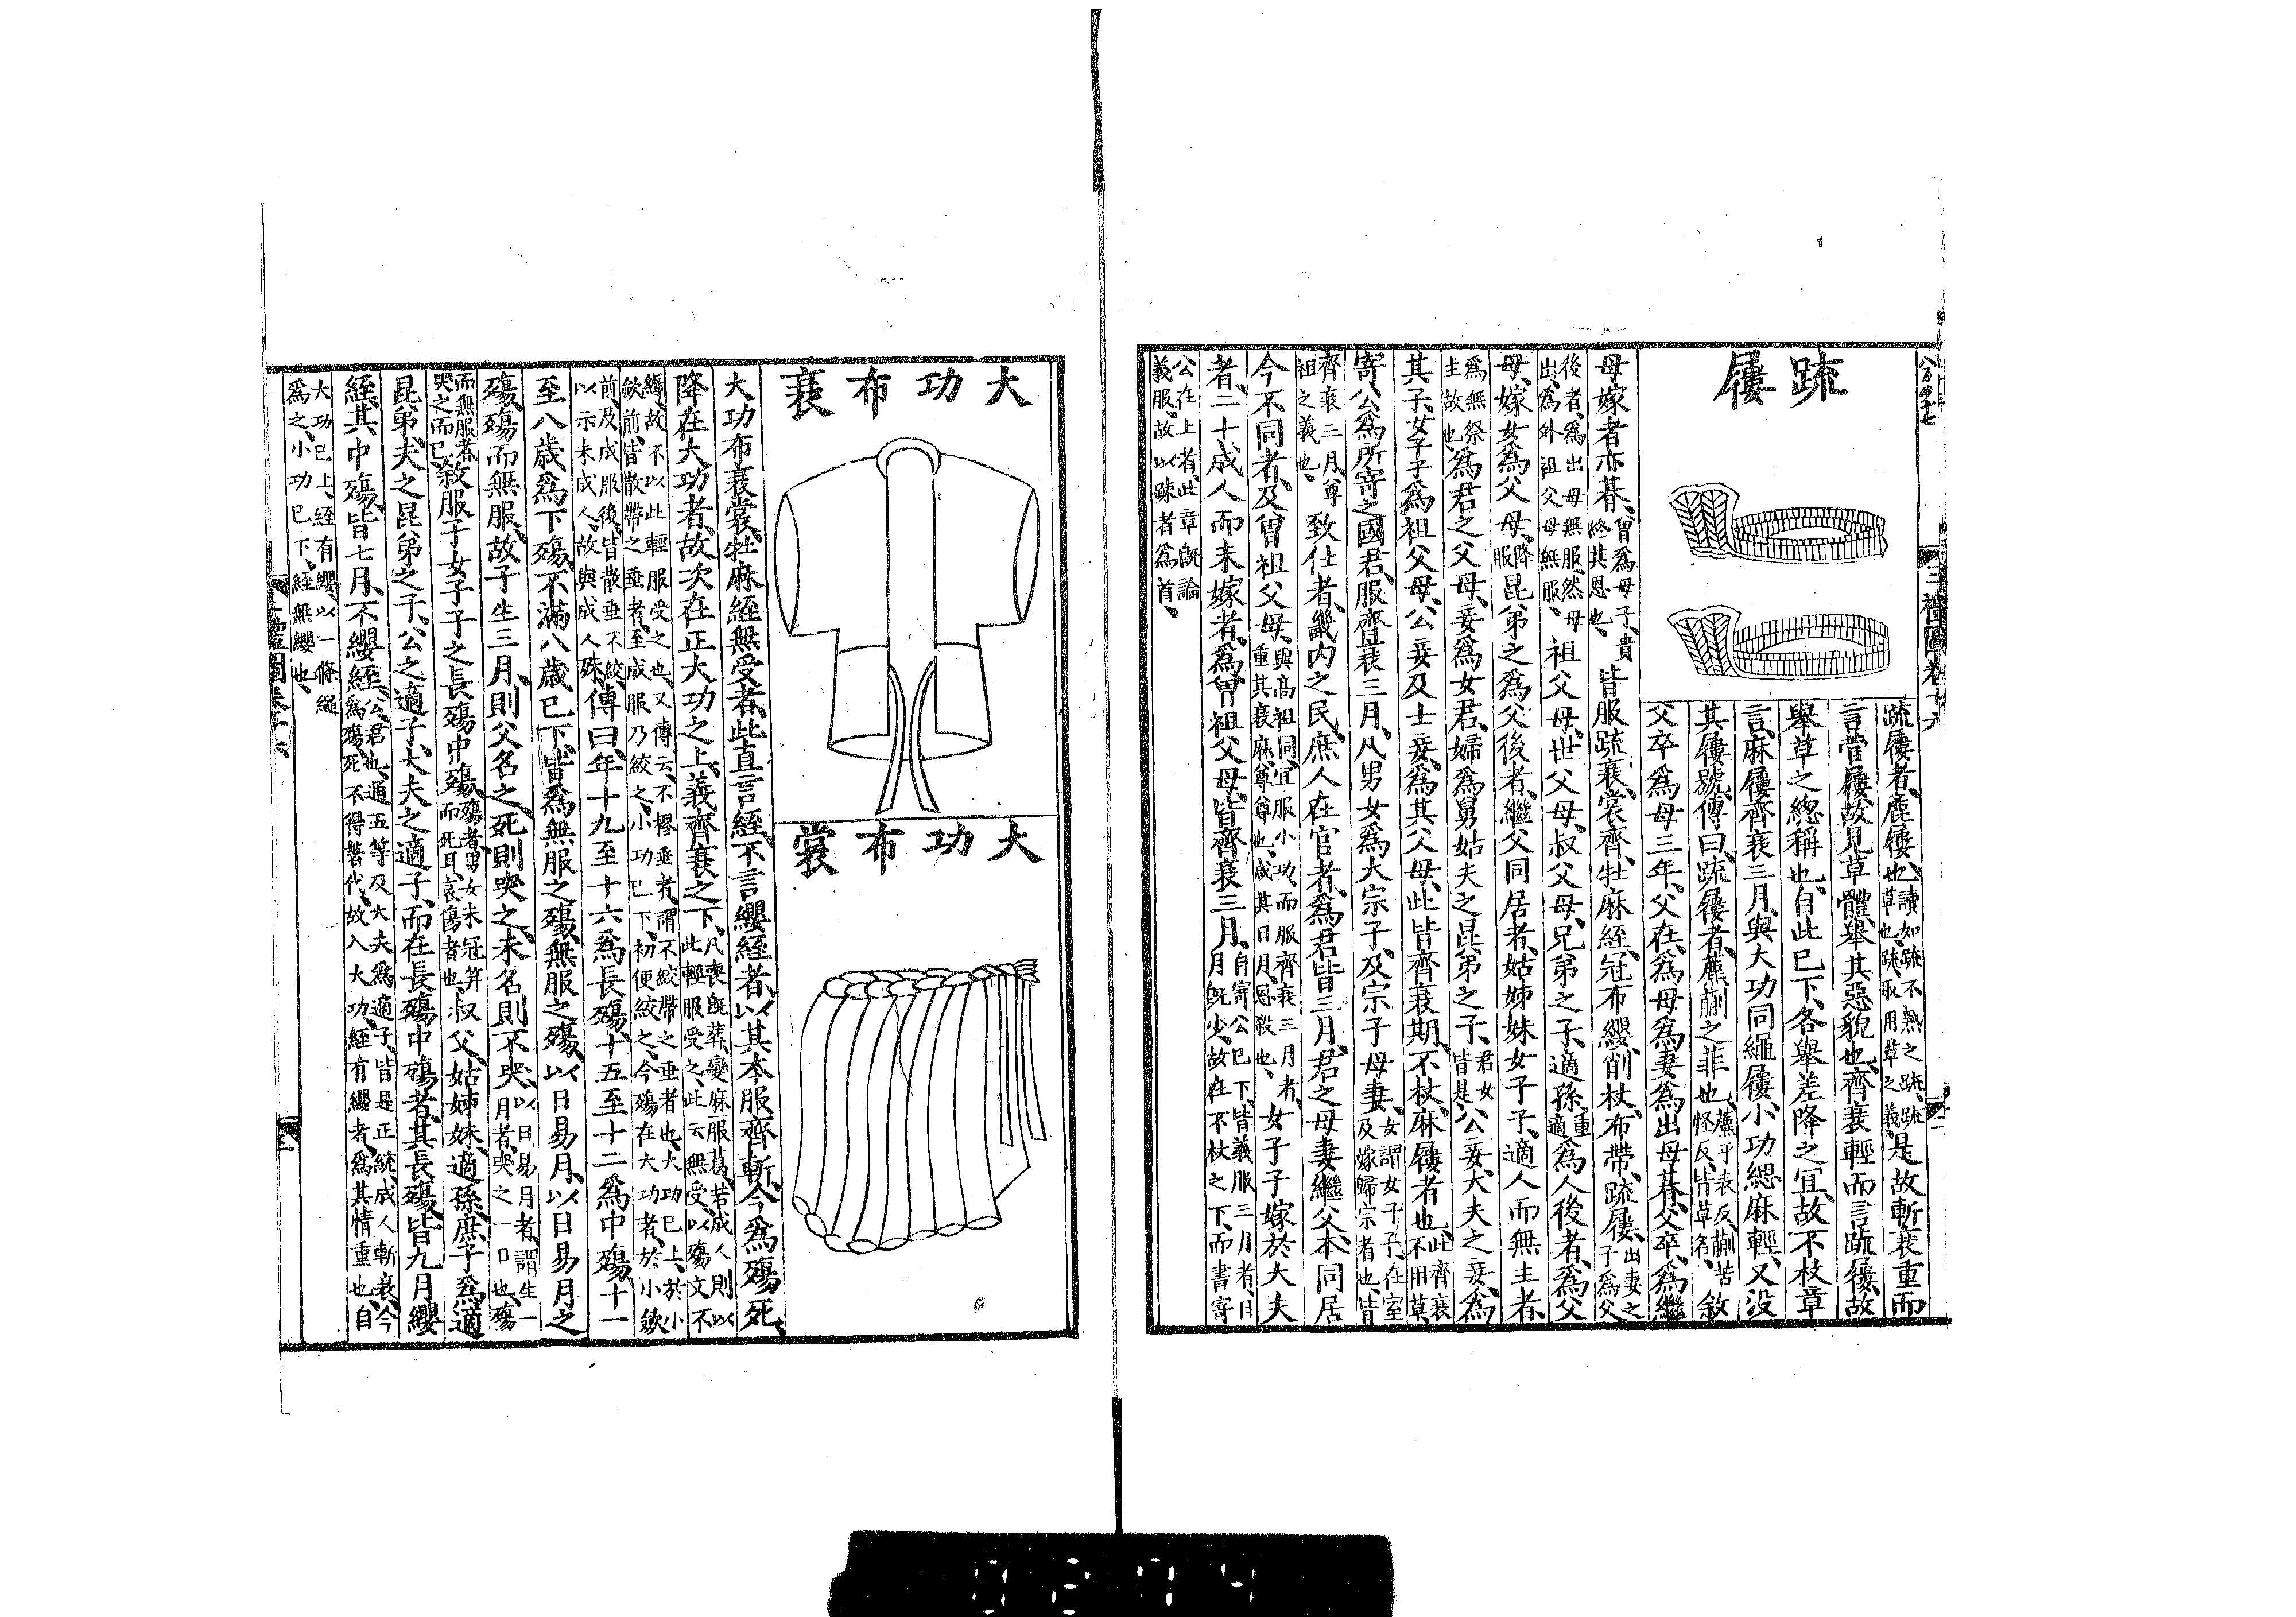 疏屨
疏屨者鹿屨也讀如疏不熟之疏疏草也疏取用草之義是故斬衰重而
言菅屨故見草體舉其惡貌也齊衰輕而言疏屨故
舉草之總稱也自此已下各舉差降之宜故不杖章
言麻屨齊衰三月與大功同繩屨小功緦麻輕又没
其屨號傳曰疏屨者藨蒯之菲也藨平表反蒯苦怪反皆草名敘
父卒爲母三年父在爲母爲妻爲出母朞父卒爲繼
母嫁者亦朞嘗爲母子貴終其恩也皆服疏衰裳齊牡麻絰冠布纓削杖布帶疏屨出妻之子爲父
後者爲出母無服然母出爲外祖父母無服祖父母世父母叔父母兄弟之子適孫重適爲人後者爲父
母嫁女爲父母降服昆弟之爲父後者繼父同居者姑姊妹女子子適人而無主者
爲無祭主故也爲君之父母妾爲女君婦爲舅姑夫之昆弟之子君女皆是公妾大夫之妾爲
其子女子子爲祖父母公妾及士妾爲其父母此皆齊衰期不杖麻屨者也此齊衰不用草
寄公爲所寄之國君服齊衰三月凡男女爲大宗子及宗子母妻女謂女子子在室及嫁歸宗者也皆
齊衰三月尊祖之義也致仕者畿内之民庶人在官者爲君皆三月君之母妻繼父本同居
今不同者及曾祖父母與高祖同宜服小功而服齊衰三月者重其衰麻尊尊也咸其日月恩殺也女子子嫁於大夫
者二十成人而未嫁者爲曾祖父母皆齊衰三月自寄公已下皆義服三月者日月旣少故在不杖之下而書寄
公在上者此章旣論義服故以疎者爲首
大功布衰
大功布裳
大功布衰裳牡麻絰無受者此直言絰不言纓絰者以其本服齊斬今爲殤死
降在大功者故次在正大功之上義齊衰之下凡喪旣葬變麻服葛若成人則以此輕服受之此云無受以殤文不
縟故不以此輕服受之也又傳云不樛垂者謂不絞帶之垂者也大功已上於小歛前皆散帶之垂者至成服乃絞之小功已下初便絞之今殤在大功者於小歛
前及成服後皆散垂不絞以示未成人故與成人殊傳曰年十九至十六爲長殤十五至十二爲中殤十一
至八歳爲下殤不滿八歳已下皆爲無服之殤無服之殤以日易月以日易月之
殤殤而無服故子生三月則父名之死則哭之未名則不哭以日易月者謂生一月者哭之一日也殤
而無服者哭之而已敘服子女子子之長殤中殤殤者男女未冠笄而死耳哀傷者也叔父姑姊妹適孫庶子爲適
昆弟夫之昆弟之子公之適子大夫之適子而在長殤中殤者其長殤皆九月纓
絰其中殤皆七月不纓絰公君也通五等及大夫爲適子皆是正統成人斬衰今爲殤死不得著代故入大功絰有纓者爲其情重也自
大功已上絰有纓以一條繩爲之小功已下絰無纓也